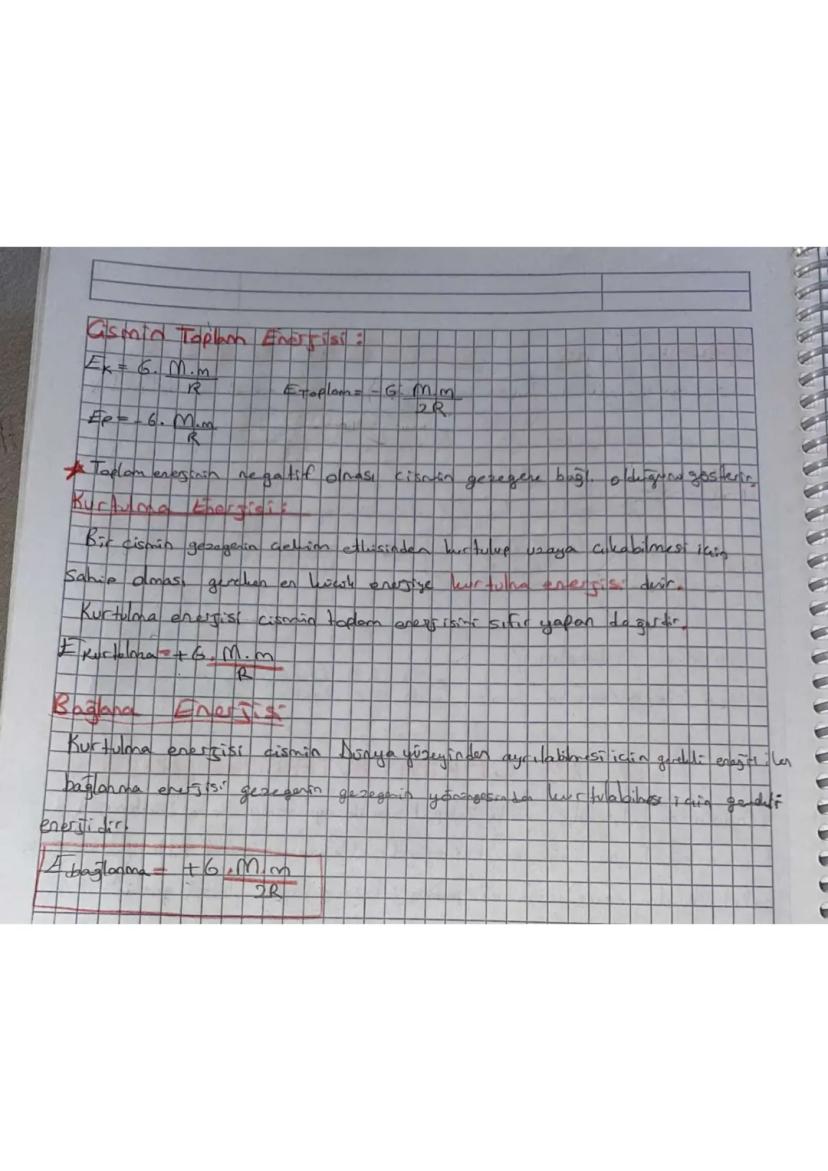 Cismin Toplam Enerjisi :
Ek = G. M.m / R
EToplam = -G M.m / 2R
Ep = -G. M.m / R
* Toplam enerjinin negatif olması cismin gezegene bağlı olduğunu gösterir.
Kurtulma Enerjisi :
Bir cismin gezegenin çekim etkisinden kurtulup uzaya çıkabilmesi için
sahip olması gereken en küçük enerjiye kurtulma enerjisi denir.
Kurtulma enerjisi cismin toplam enerjisini sıfır yapan değerdir.
E kurtulma = +G. M.m / R
Bağlama Enerjisi
Kurtulma enerjisi cismin Dünya yüzeyinden ayrılabilmesi için gerekli enerji iken
bağlanma enerjisi gezegenin gezegenin yörüngesinden kurtulabilmesi için gerekli
enerjidir.
E bağlanma = +G .M.m / 2R